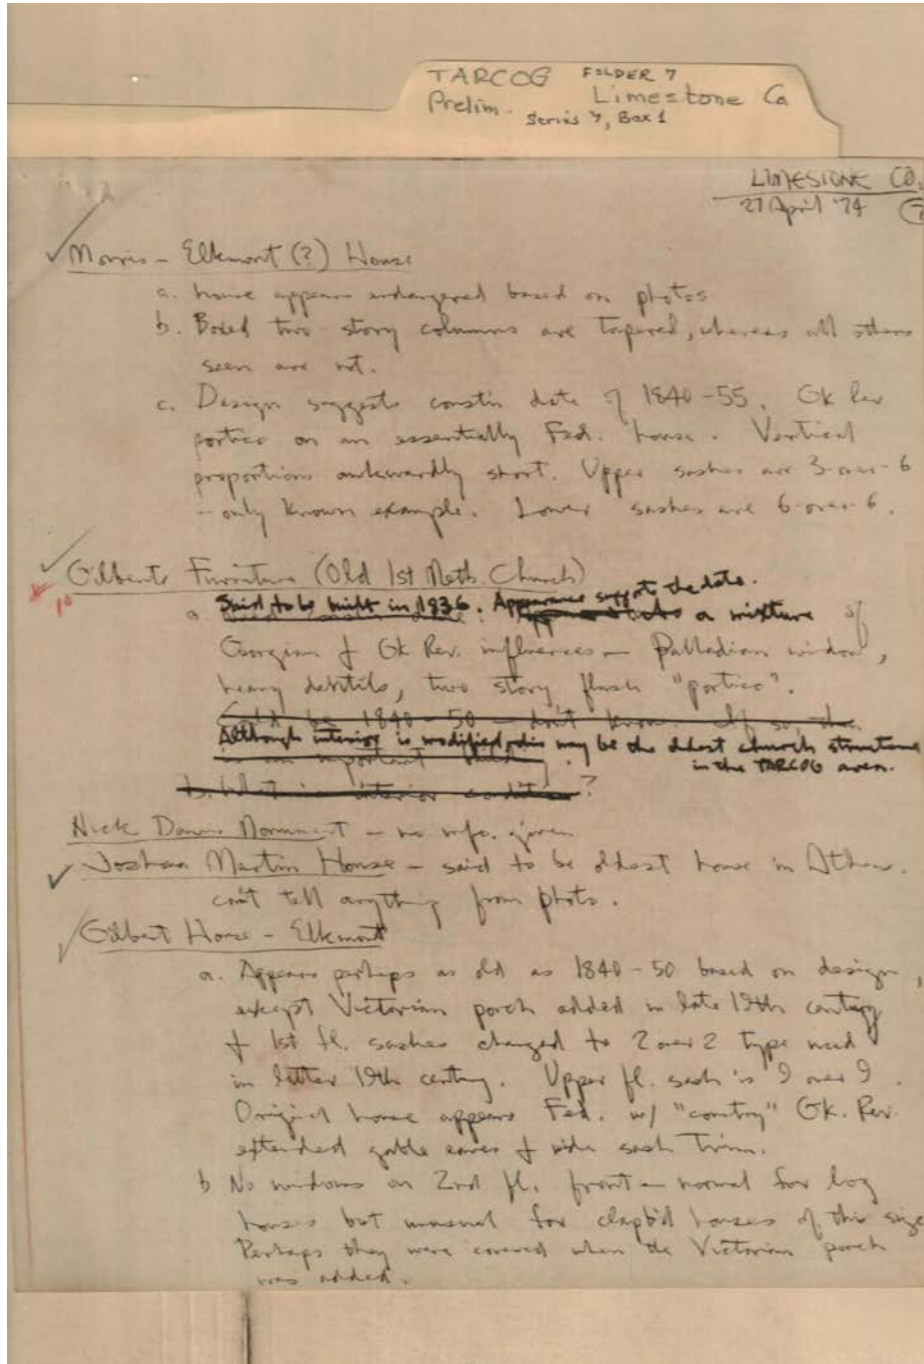 TARCOG FOLDER 7
Prelim. Limestone Co
Series 7, Box 1
LIMESTONE CO.
27 April '74
Morris - Elkmont (?) House
a. house appears endangered based on photos
b. Boxed two story columns are tapered, whereas all others
seen are not.
c. Design suggests constr'n date of 1840-55. Gk Rev
portico on an essentially Fed. house. Vertical
proportions awkwardly short. Upper sashes are 3-over-6
-- only known example. Lower sashes are 6-over-6.
Gilberts Furniture (Old 1st Meth. Church)
1°
a Said to be built in 1836. Appearance support the date.
a mixture of
Georgian & Gk Rev. influences - Palladian window,
heavy dentils, two story flush "portico".
Could be 1840-50 - don't know. If so, this
Although interior is modified, this may be the oldest church structure
is an important bldg.
in the TARCOG area.
b. What is interior condition?
Nick Davis Monument - no info. given
Joshua Martin House - said to be oldest house in Athens.
can't tell anything from photo.
Gilbert House - Elkmont
a. Appears perhaps as old as 1840-50 based on design,
except Victorian porch added in late 19th century
& 1st fl. sashes changed to 2 over 2 type used
in latter 19th century. Upper fl. sash is 9 over 9.
Original house appears Fed. w/ "country" Gk. Rev.
extended gable eaves & wide sash trim.
b No windows on 2nd fl. front - normal for log
houses but unusual for clapb'd houses of this size
Perhaps they were covered when the Victorian porch
was added.